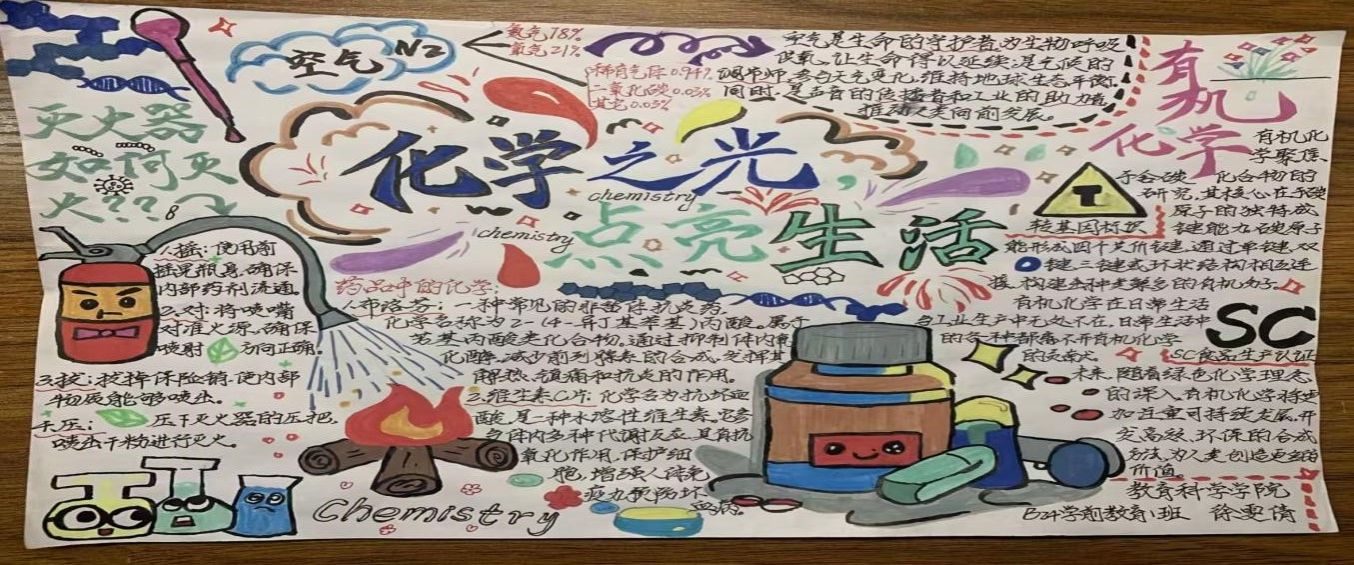 空气
N2
氮气78%
氧气21%
稀有气体0.94%
二氧化碳0.03%
其它0.03%
空气是生命的守护者,为生物呼吸
供氧,让生命得以延续;是气候的
调节师,参与天气变化,维持地球生态平衡.
同时,是声音的传播者和工业的助力,
推动人类向前发展。
灭火器
如何灭
火??
化学之光
chemistry
chemistry
点亮生活
1.摇:使用前
摇晃瓶身,确保
内部药剂流通.
2.对:将喷嘴
对准火源,确保
喷射方向正确.
3.拔:拔掉保险销,使内部
物质能够喷出.
压下灭火器的压把,
喷出干粉进行灭火。
药品中的化学:
1.布洛芬:一种常见的非甾体抗炎药.
化学名称为2-(4-异丁基苯基)丙酸,属于
苯基丙酸类化合物.通过抑制体内
化酶,减少前列腺素的合成,发挥其
解热、镇痛和抗炎的作用。
2.维生素C片:化学名为抗坏血
酸,是一种水溶性维生素,它参
与体内多种代谢反应,具有抗
氧化作用,保护细
胞,增强人体免
疫力,预防坏
血病。
Chemistry
有机
化学
有机化
学聚焦
于含碳化合物的
研究,其核心在于碳
原子的独特成
键能力,碳原子
能形成四个共价键,通过单键、双
键、三键或环状结构相互连
接,构建出种类繁多的有机分子.
T
转基因标识
有机化学在日常生活
与工业生产中无处不在,日常生活中
的各种都离不开有机化学
的贡献.
SC
SC食品生产认证
未来,随着绿色化学理念
的深入,有机化学将更
加注重可持续发展,开
发高效、环保的合成
方法,为人类创造更多的
价值。
教育科学学院
B24学前教育1班 徐雯倩